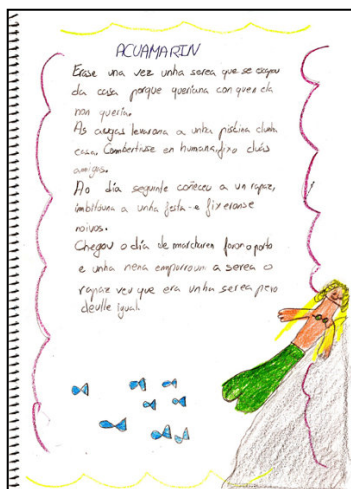 ACUAMARIN
Erase una vez unha serea que se escapou
da casa porque queriana con quen ela
non quería.
As augas levarona a unha piscina dunha
casa. Combertiuse en humana, fixo duas
amigas.
Ao día seguinte coñeceu a un rapaz,
imbitouna a unha festa e fixeronse
noivos.
Chegou o día de marcharen foron o porto
e unha nena emparrouna a serea o
rapaz veu que era unha serea pero
deulle igual